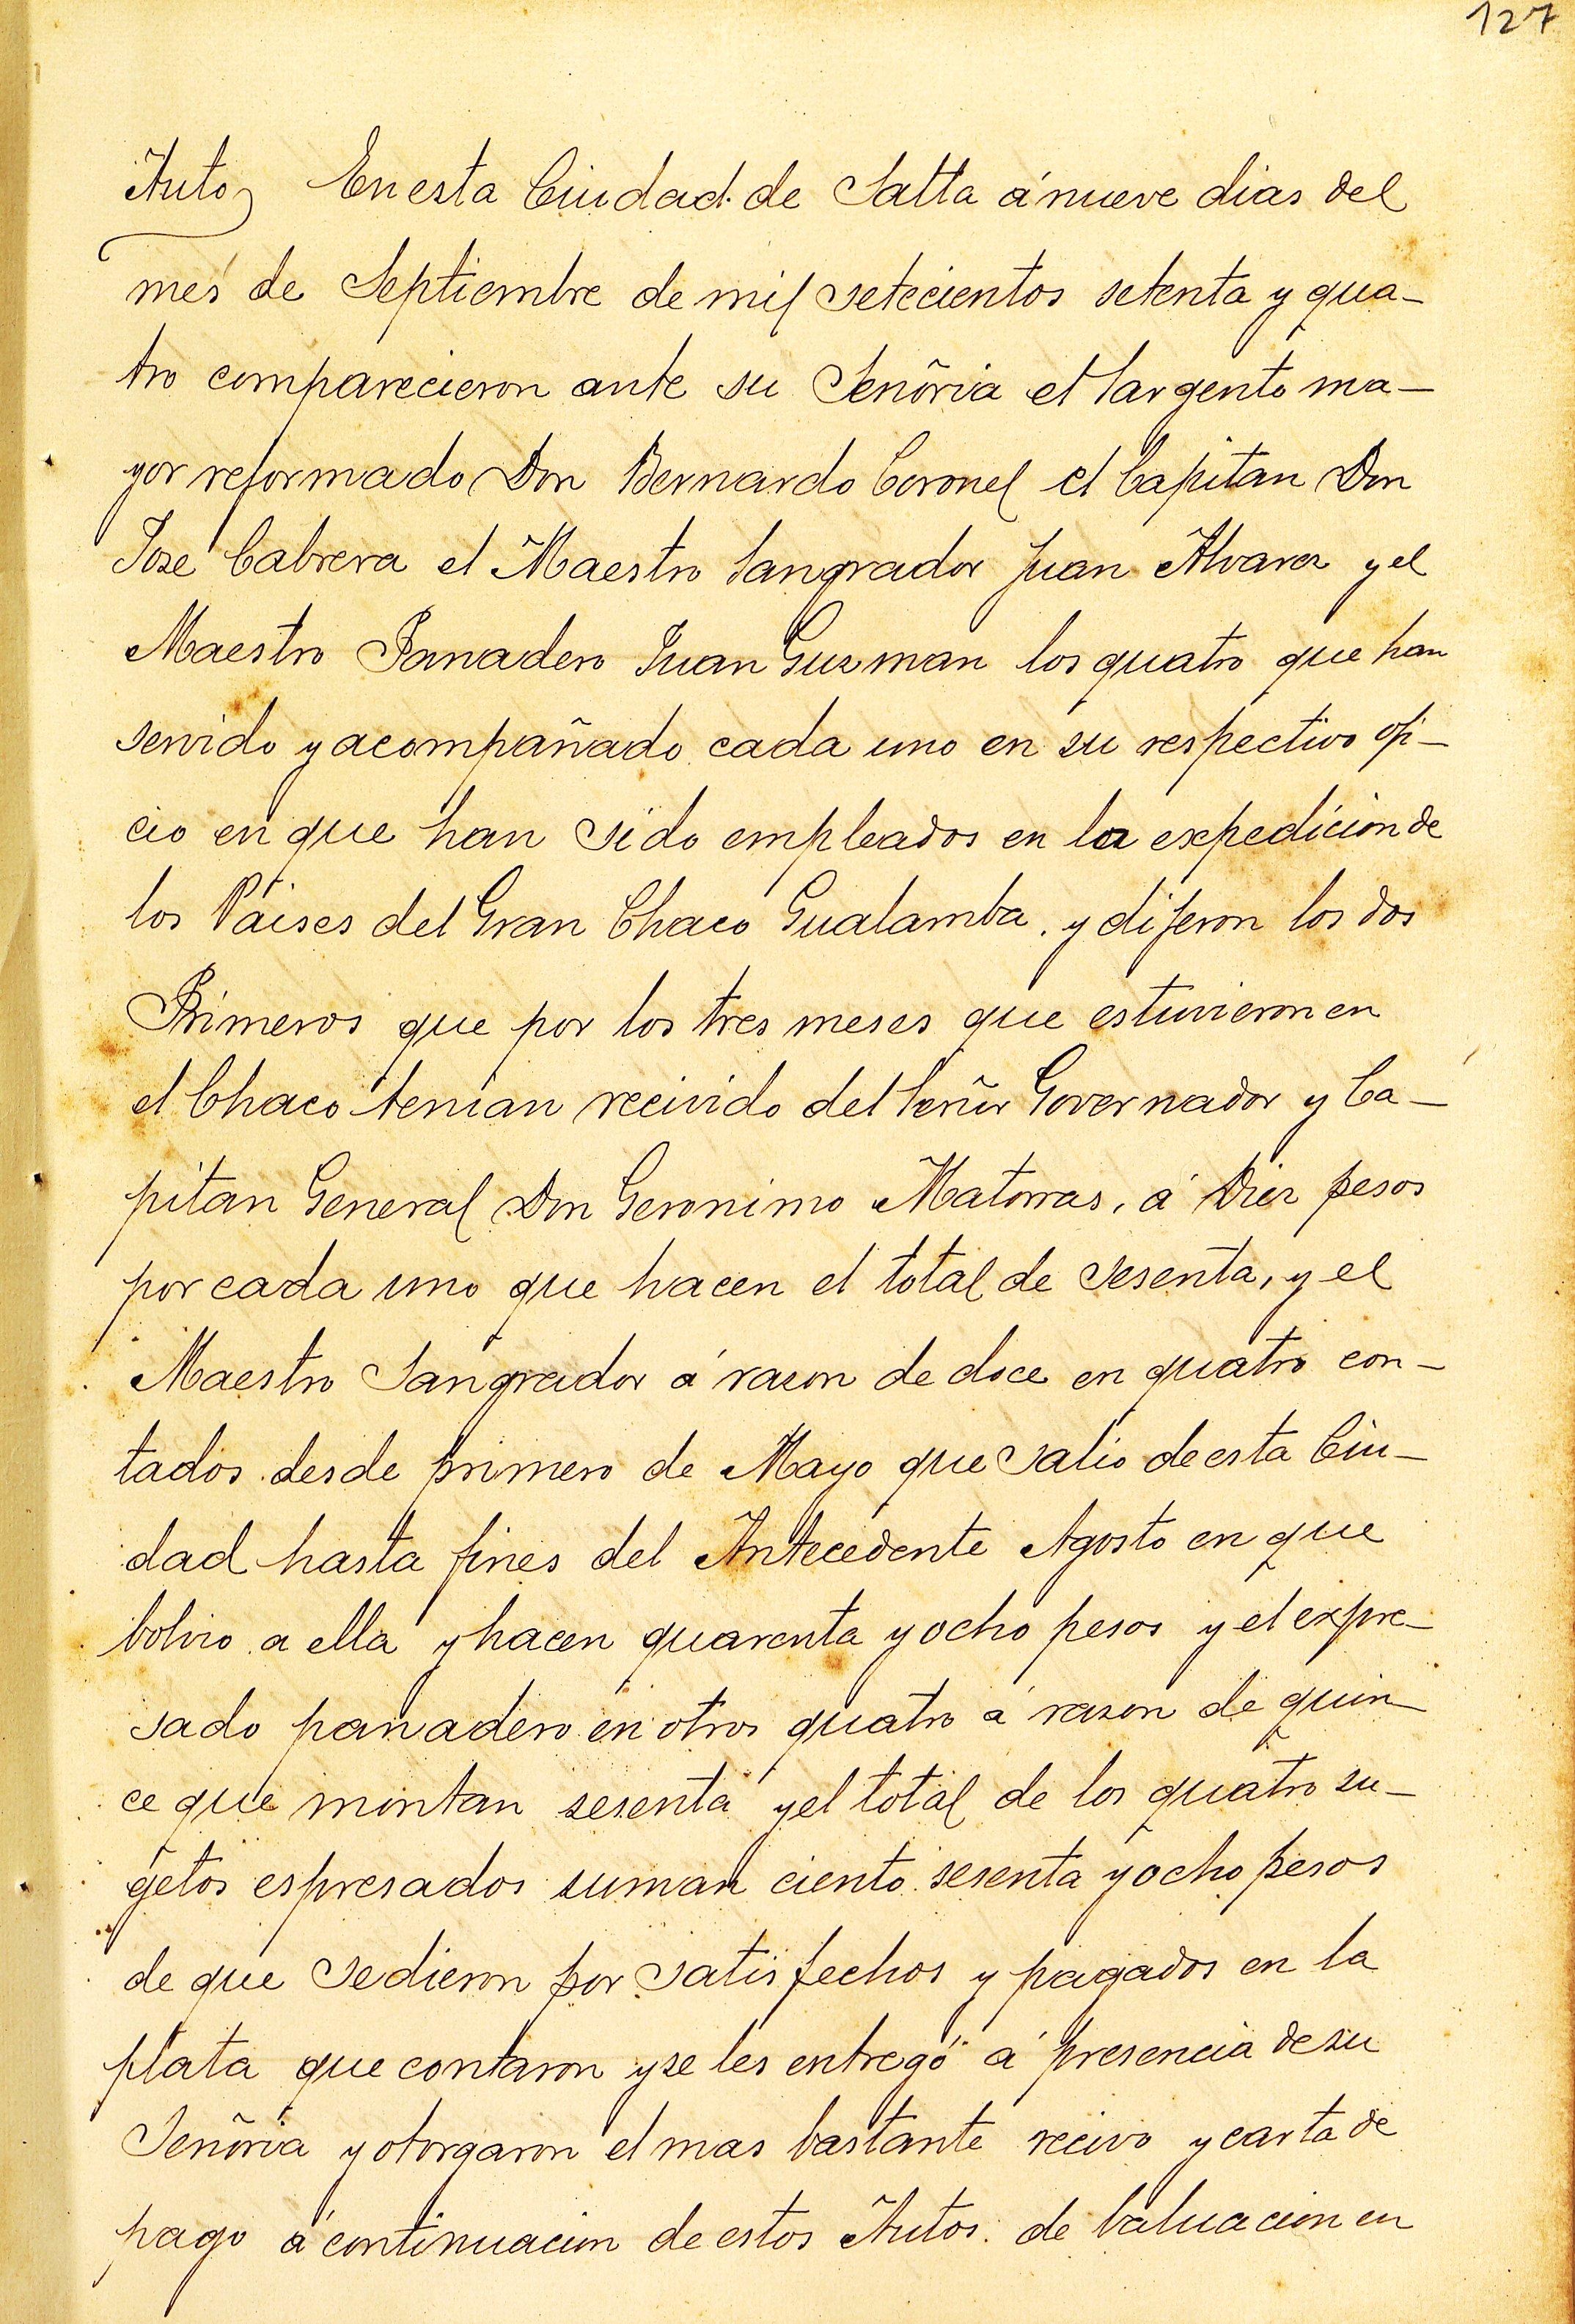 127
Auto, En esta Ciudad de Salta á nueve dias del
més de Septiembre de mil setecientos setenta y qua-
tro comparecieron ante su Señoria el Sargento ma-
yor reformado Don Bernardo Coronel el Capitan Don
José Cabrera el Maestro Sangrador Juan Alvarez y el
Maestro Panadero Juan Guzman los quatro que han
servido y acompañado cada uno en su respectivo ofi-
cio en que han sido empleados en la expedicion de
los Paises del Gran Chaco Gualamba, y dijeron los dos
Primeros que por los tres meses que estuvieron en
el Chaco tenian recivido del Señor Governador y Ca-
pitan General Don Geronimo Matorras, á Diez pesos
por cada uno que hacen el total de sesenta, y el
Maestro Sangrador á razon de doce en quatro con-
tados desde primero de Mayo que salio de esta Ciu-
dad hasta fines del Antecedente Agosto en que
bolvio a ella y hacen quarenta y ocho pesos y el expre-
sado panadero en otros quatro á razon de quin-
ce que montan sesenta y el total de los quatro su-
getos espresados suman ciento sesenta y ocho pesos
de que se dieron por satisfechos y pagados en la
plata que contaron y se les entregó á presencia de su
Señoria y otorgaron el mas bastante recivo y carta de
pago á continuacion de estos Autos de baluacion en